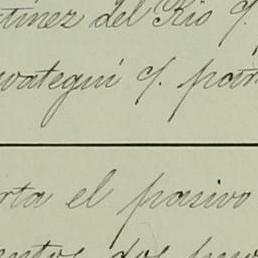 tinez del Rio c/.
uvategui c/. para
rta el pasivo
entos dos